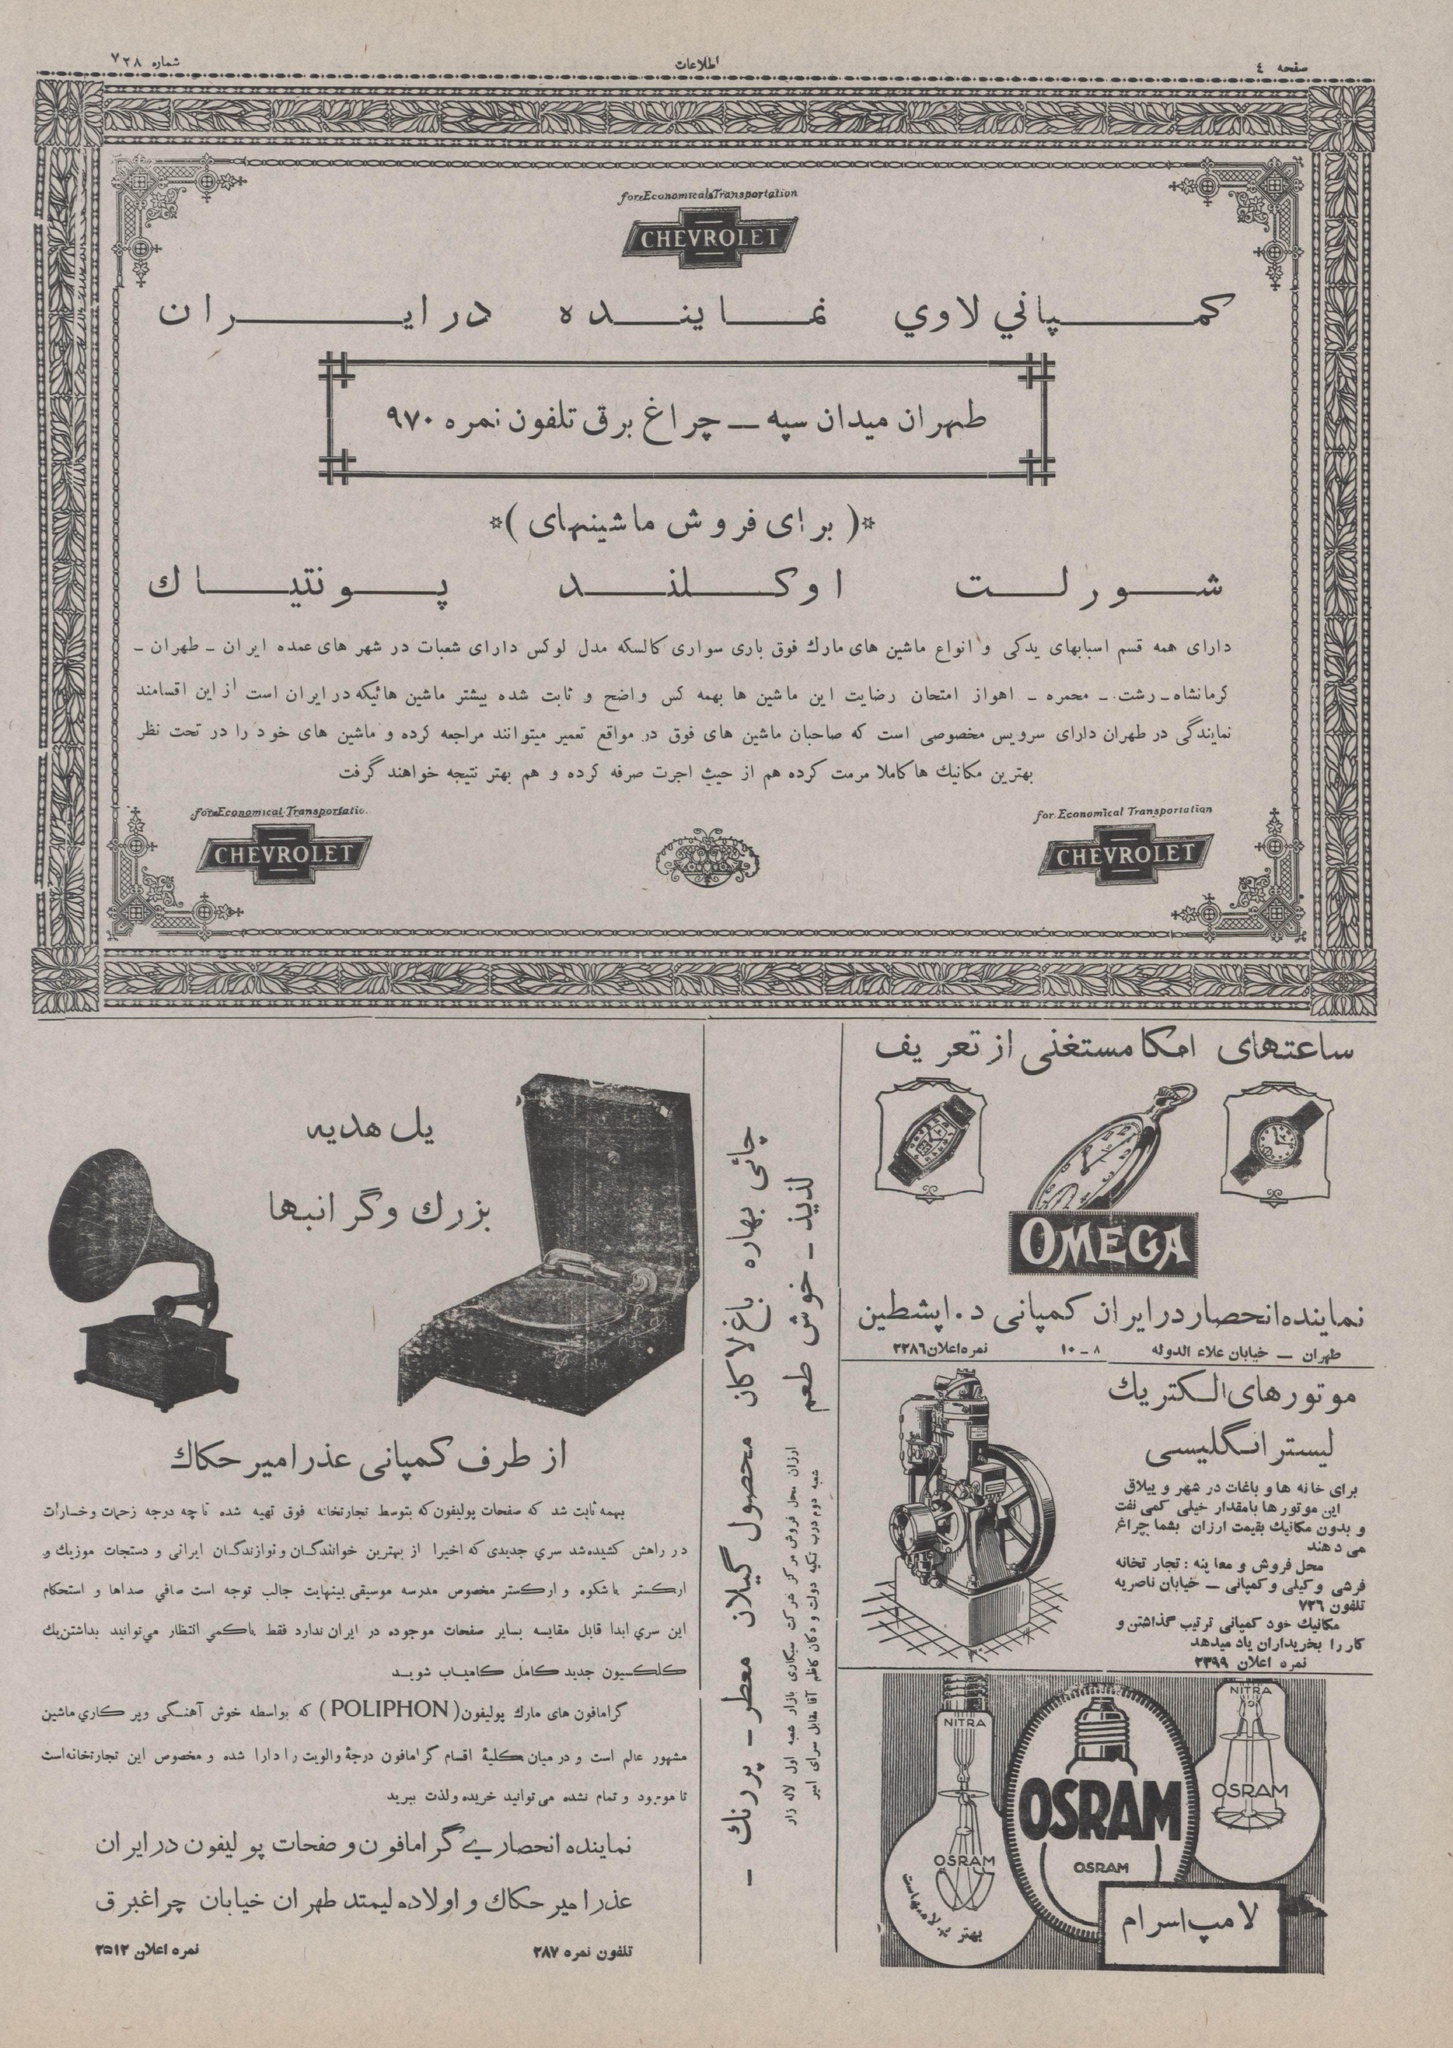 صفحه ٤
اطلاعات
شماره ٧٢٨
for Economical Transportation
CHEVROLET
کمپانی لاوی نماینده در ایران
طهران میدان سپه — چراغ برق تلفون نمره ٩٧٠
*( برای فروش ماشینهای )*
شورلت اوکلند پونتیاک
دارای همه قسم اسبابهای یدکی و انواع ماشین های مارک فوق باری سواری کالسکه مدل لوکس دارای شعبات در شهر های عمده ایران – طهران –
کرمانشاه – رشت – محمره – اهواز امتحان رضایت این ماشین ها بهمه کس واضح و ثابت شده بیشتر ماشین هائیکه در ایران است از این اقسامند
نمایندگی در طهران دارای سرویس مخصوصی است که صاحبان ماشین های فوق در مواقع تعمیر میتوانند مراجعه کرده و ماشین های خود را در تحت نظر
بهترین مکانیک ها کاملا مرمت کرده هم از حیث اجرت صرفه کرده و هم بهتر نتیجه خواهند گرفت
for Economical Transportation
CHEVROLET
for Economical Transportatio
CHEVROLET
ساعتهای امکا مستغنی از تعریف
OMEGA
نماینده انحصار در ایران کمپانی د. اپشطین
طهران — خیابان علاء الدوله ٨ – ١٠ نمره اعلان ٢٣٨٦
موتورهای الکتریک
لیستر انگلیسی
برای خانه ها و باغات در شهر و ییلاق
این موتور ها بامقدار خیلی کمی نفت
و بدون مکانیک بقیمت ارزان بشما چراغ
می دهند
محل فروش و معاینه : تجارتخانه
فرشی وکیلی و کمپانی – خیابان ناصریه
تلفون ٧٢٦
مکانیک خود کمپانی ترتیب گذاشتن و
کار را بخریداران یاد میدهد
نمره اعلان ٢٣٩٩
NITRA
OSRAM
OSRAM
OSRAM
NITRA
OSRAM
لامپ اسرام
چائی بهاره باغ لاکان محصول گیلان معطر – پررنگ –
لذیذ – خوش طعم
ارزان محل فروش مرکز شرکت سیگاری بازار شعبه اول لاله زار
شعبه دوم درب تکیه دولت و دکان کاظم آقا مقابل سرای امیر
یک هدیه
بزرگ و گرانبها
از طرف کمپانی عذرا میر حکاک
بهمه ثابت شد که صفحات پولیفون که بتوسط تجارتخانه فوق تهیه شده تا چه درجه زحمات و خسارات
در راهش کشیده شد سری جدیدی که اخیرا از بهترین خوانندگان و نوازندگان ایرانی و دستجات موزیک و
ارکستر باشکوه و ارکستر مخصوص مدرسه موسیقی بینهایت جالب توجه است صافی صداها و استحکام
این سری ابدا قابل مقایسه بسایر صفحات موجوده در ایران ندارد فقط باکمی انتظار می‌توانید بداشتن یک
کلکسیون جدید کامل کامیاب شوید
گرامافون های مارک پولیفون (POLIPHON) که بواسطه خوش آهنگی و پر کاری ماشین
مشهور عالم است و در میان کلیهٔ اقسام گرامافون درجهٔ والویت را دارا شده و مخصوص این تجارتخانه است
تا موجود و تمام نشده می توانید خریده و لذت ببرید
نماینده انحصاری گرامافون و صفحات پولیفون در ایران
عذرا میر حکاک و اولاده لیمتد طهران خیابان چراغبرق
تلفون نمره ٢٨٧ نمره اعلان ٢٥١٢